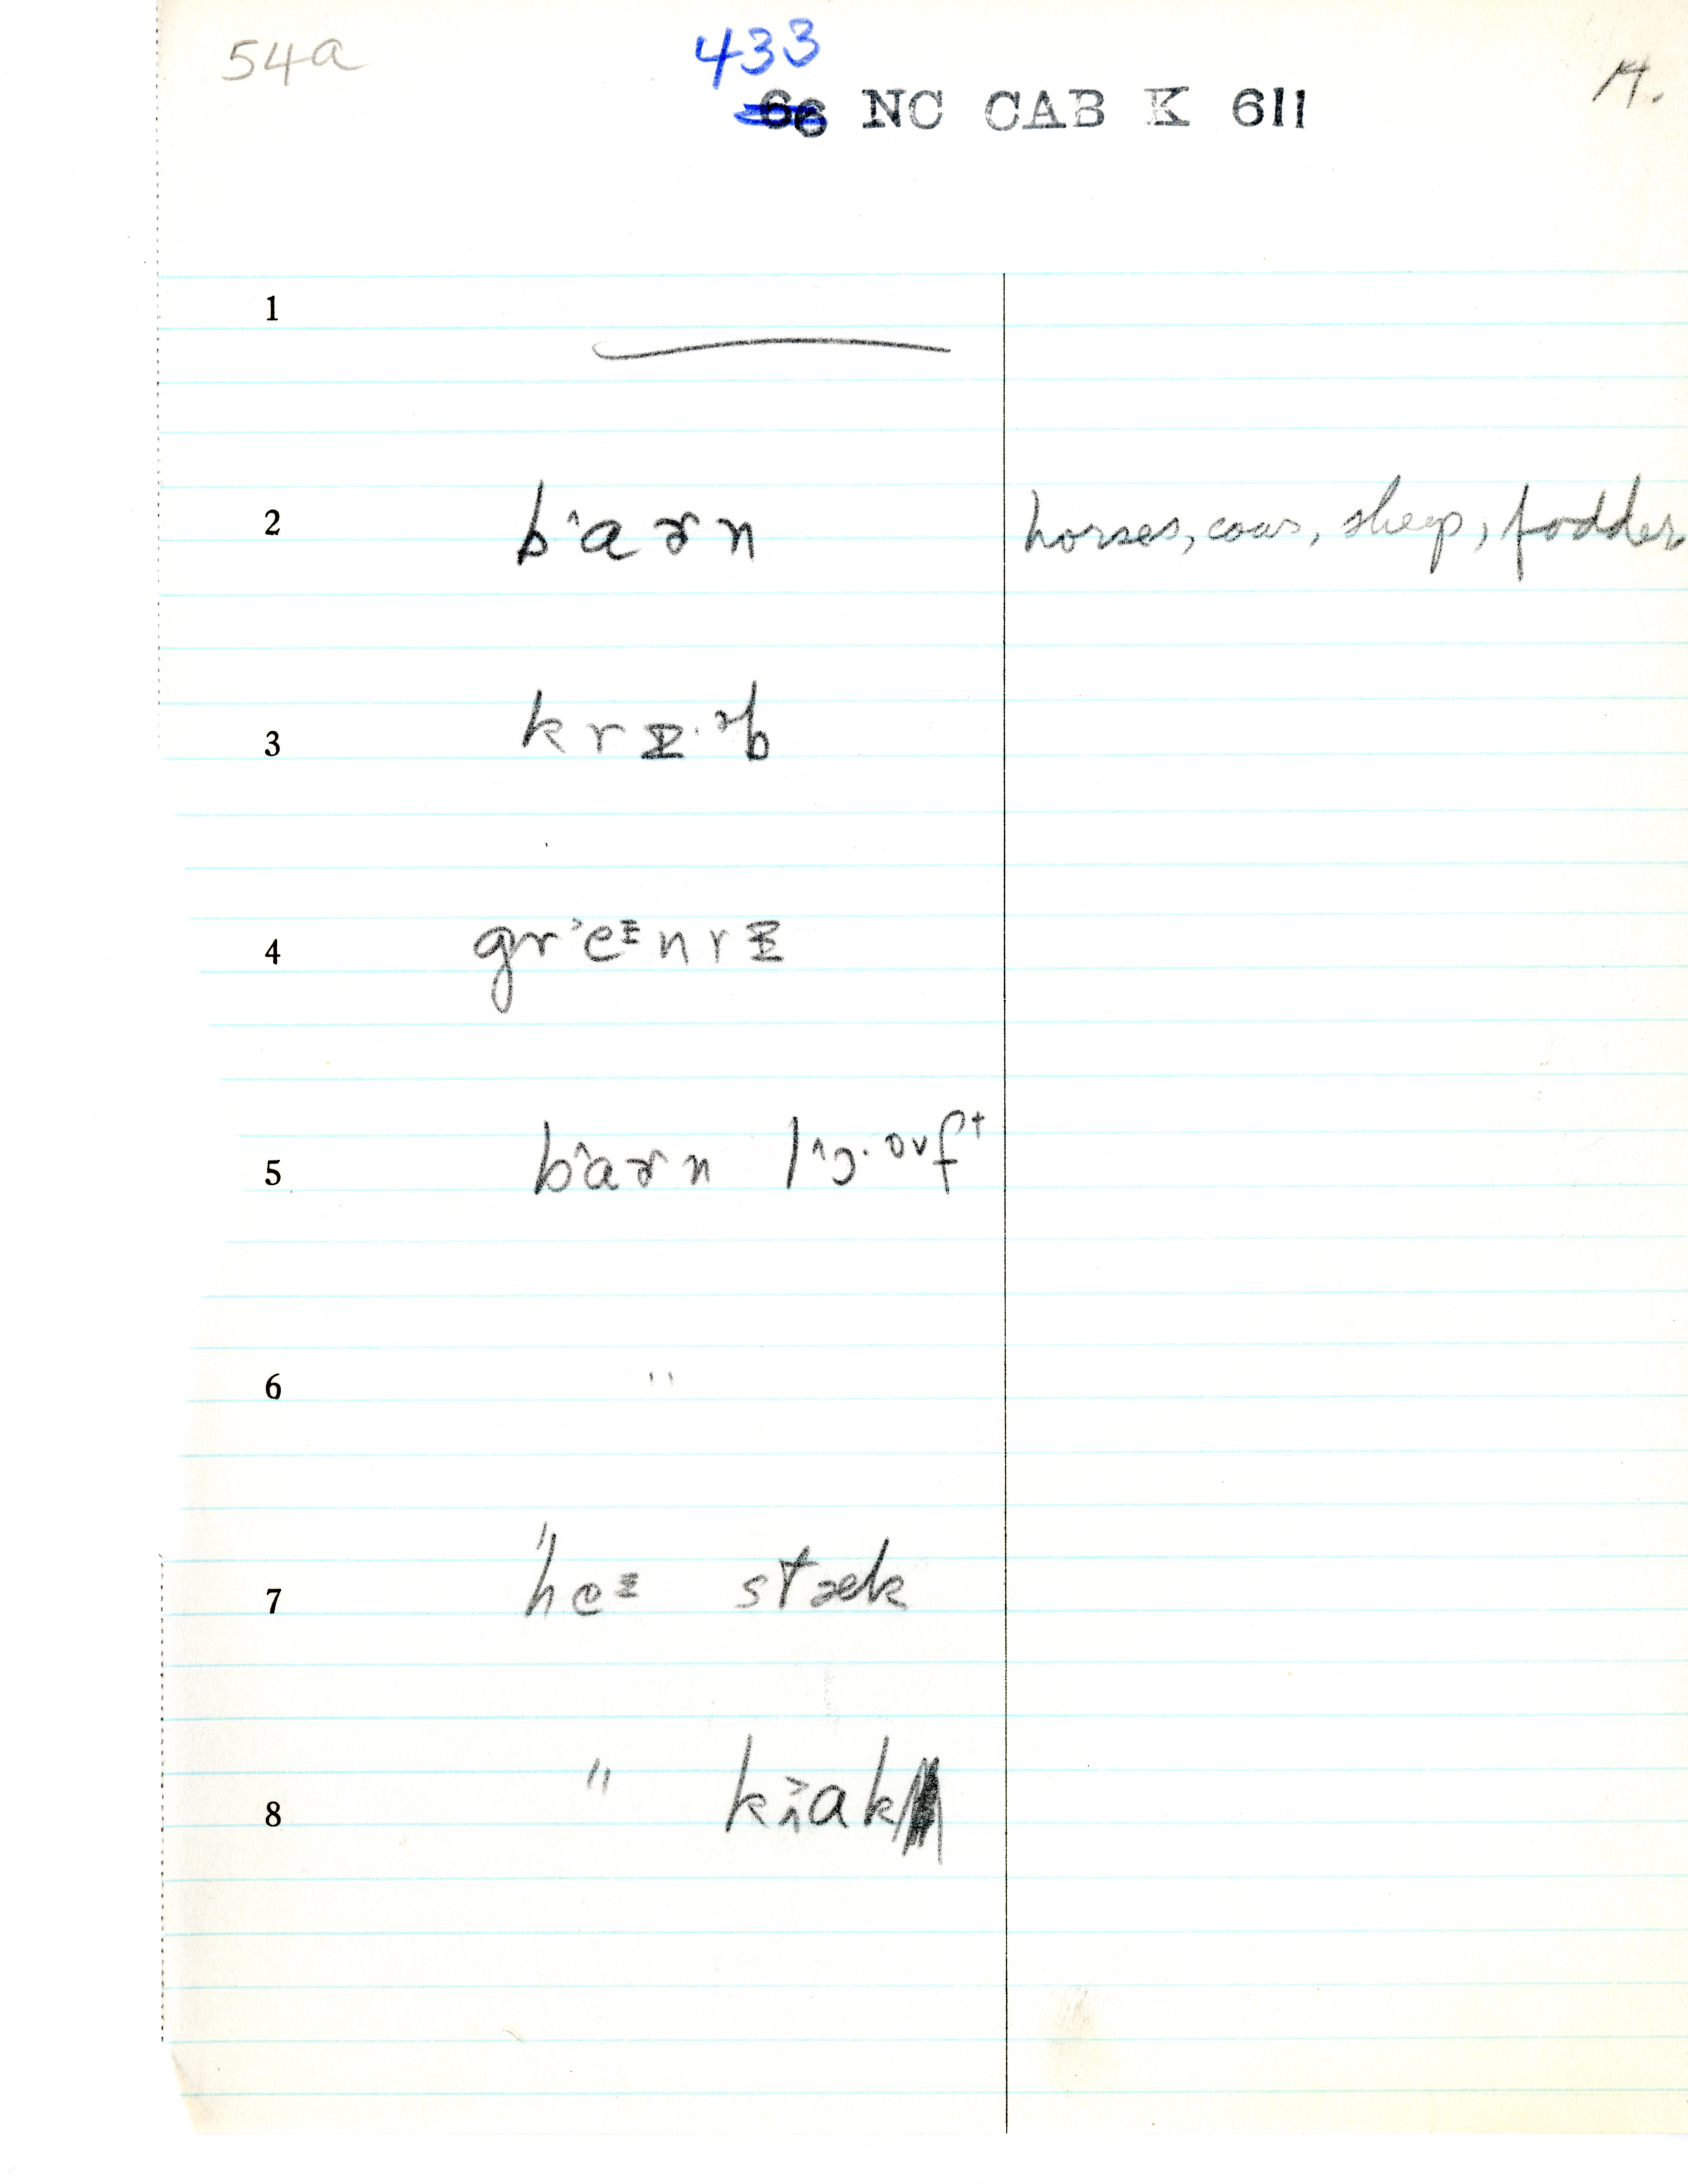 54a
433
66 NC CAB K 611
A.
1
2 bˆaɚn horses, cows, sheep, fodder
3 krɪ·ᵊb
4 gr˃eᶦnrɪ
5 bˆaɚn lˆɔ·ᵒᵛfᵗ
6 "
7 heᶦ stæk
8 " k˃ɑk